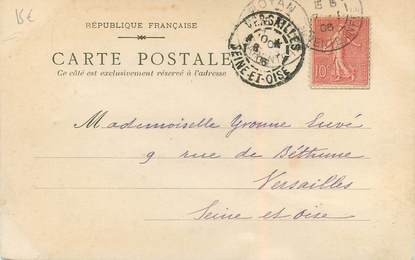 15€
RÉPUBLIQUE FRANÇAISE
CARTE POSTALE
Ce côté est exclusivement réservé à l'adresse
VERSAILLES
SEINE-ET-OISE
10
Mademoiselle Yvonne
9 rue de Béthune
Versailles
Seine et Oise